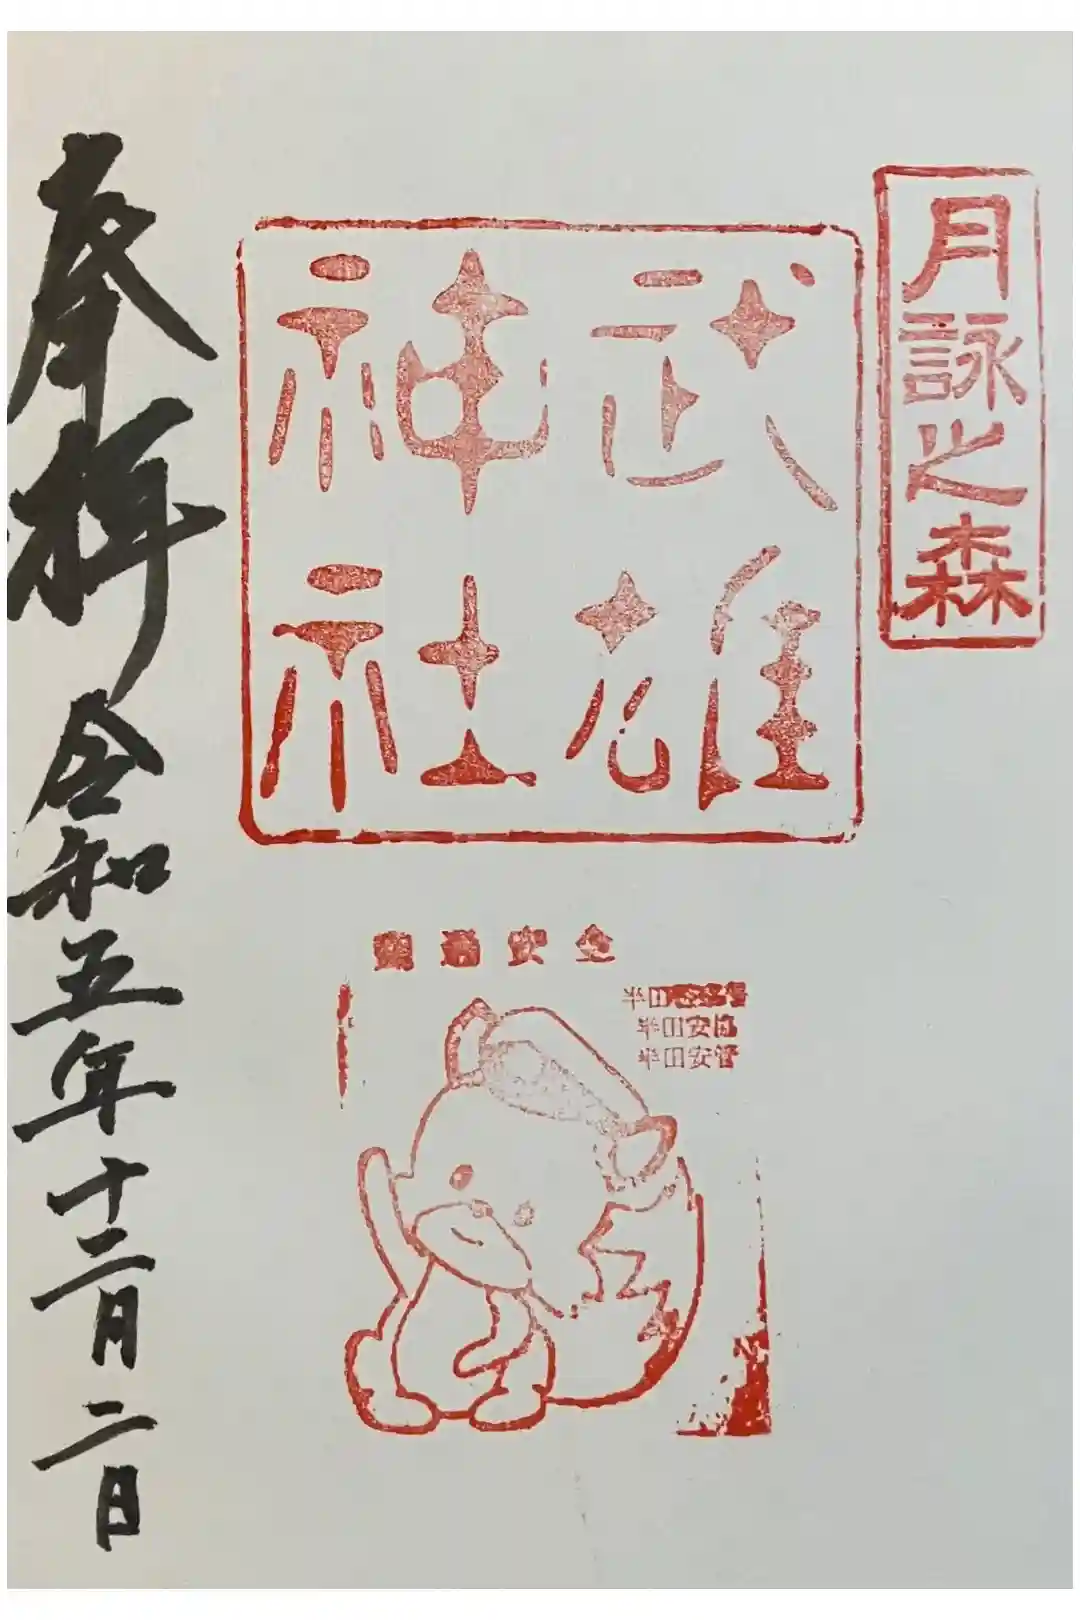 月詠之森
武雄
神社
交通安全
半田安協
半田安管
奉拝 令和五年十二月二日